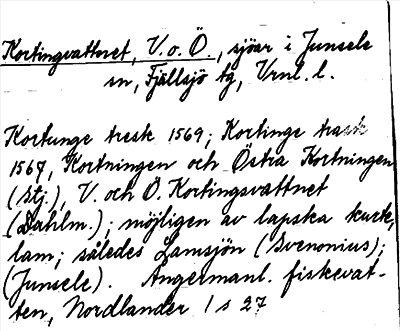 Kortingvattnet, V. o. Ö., sjöar i Junsele
sn, Fjällsjö tg, Vrnl. l.
Kortunge tresk 1569; Kortinge trask
1567, Kortningen och Östra Kortningen
(Stj.), V. och Ö. Kortingsvattnet
(Dahlm.); möjligen av lapska kurte,
lam; således Lamsjön (Svenonius);
(Junsele). Angermanl. fiskevat-
ten, Nordlander 1 s 27